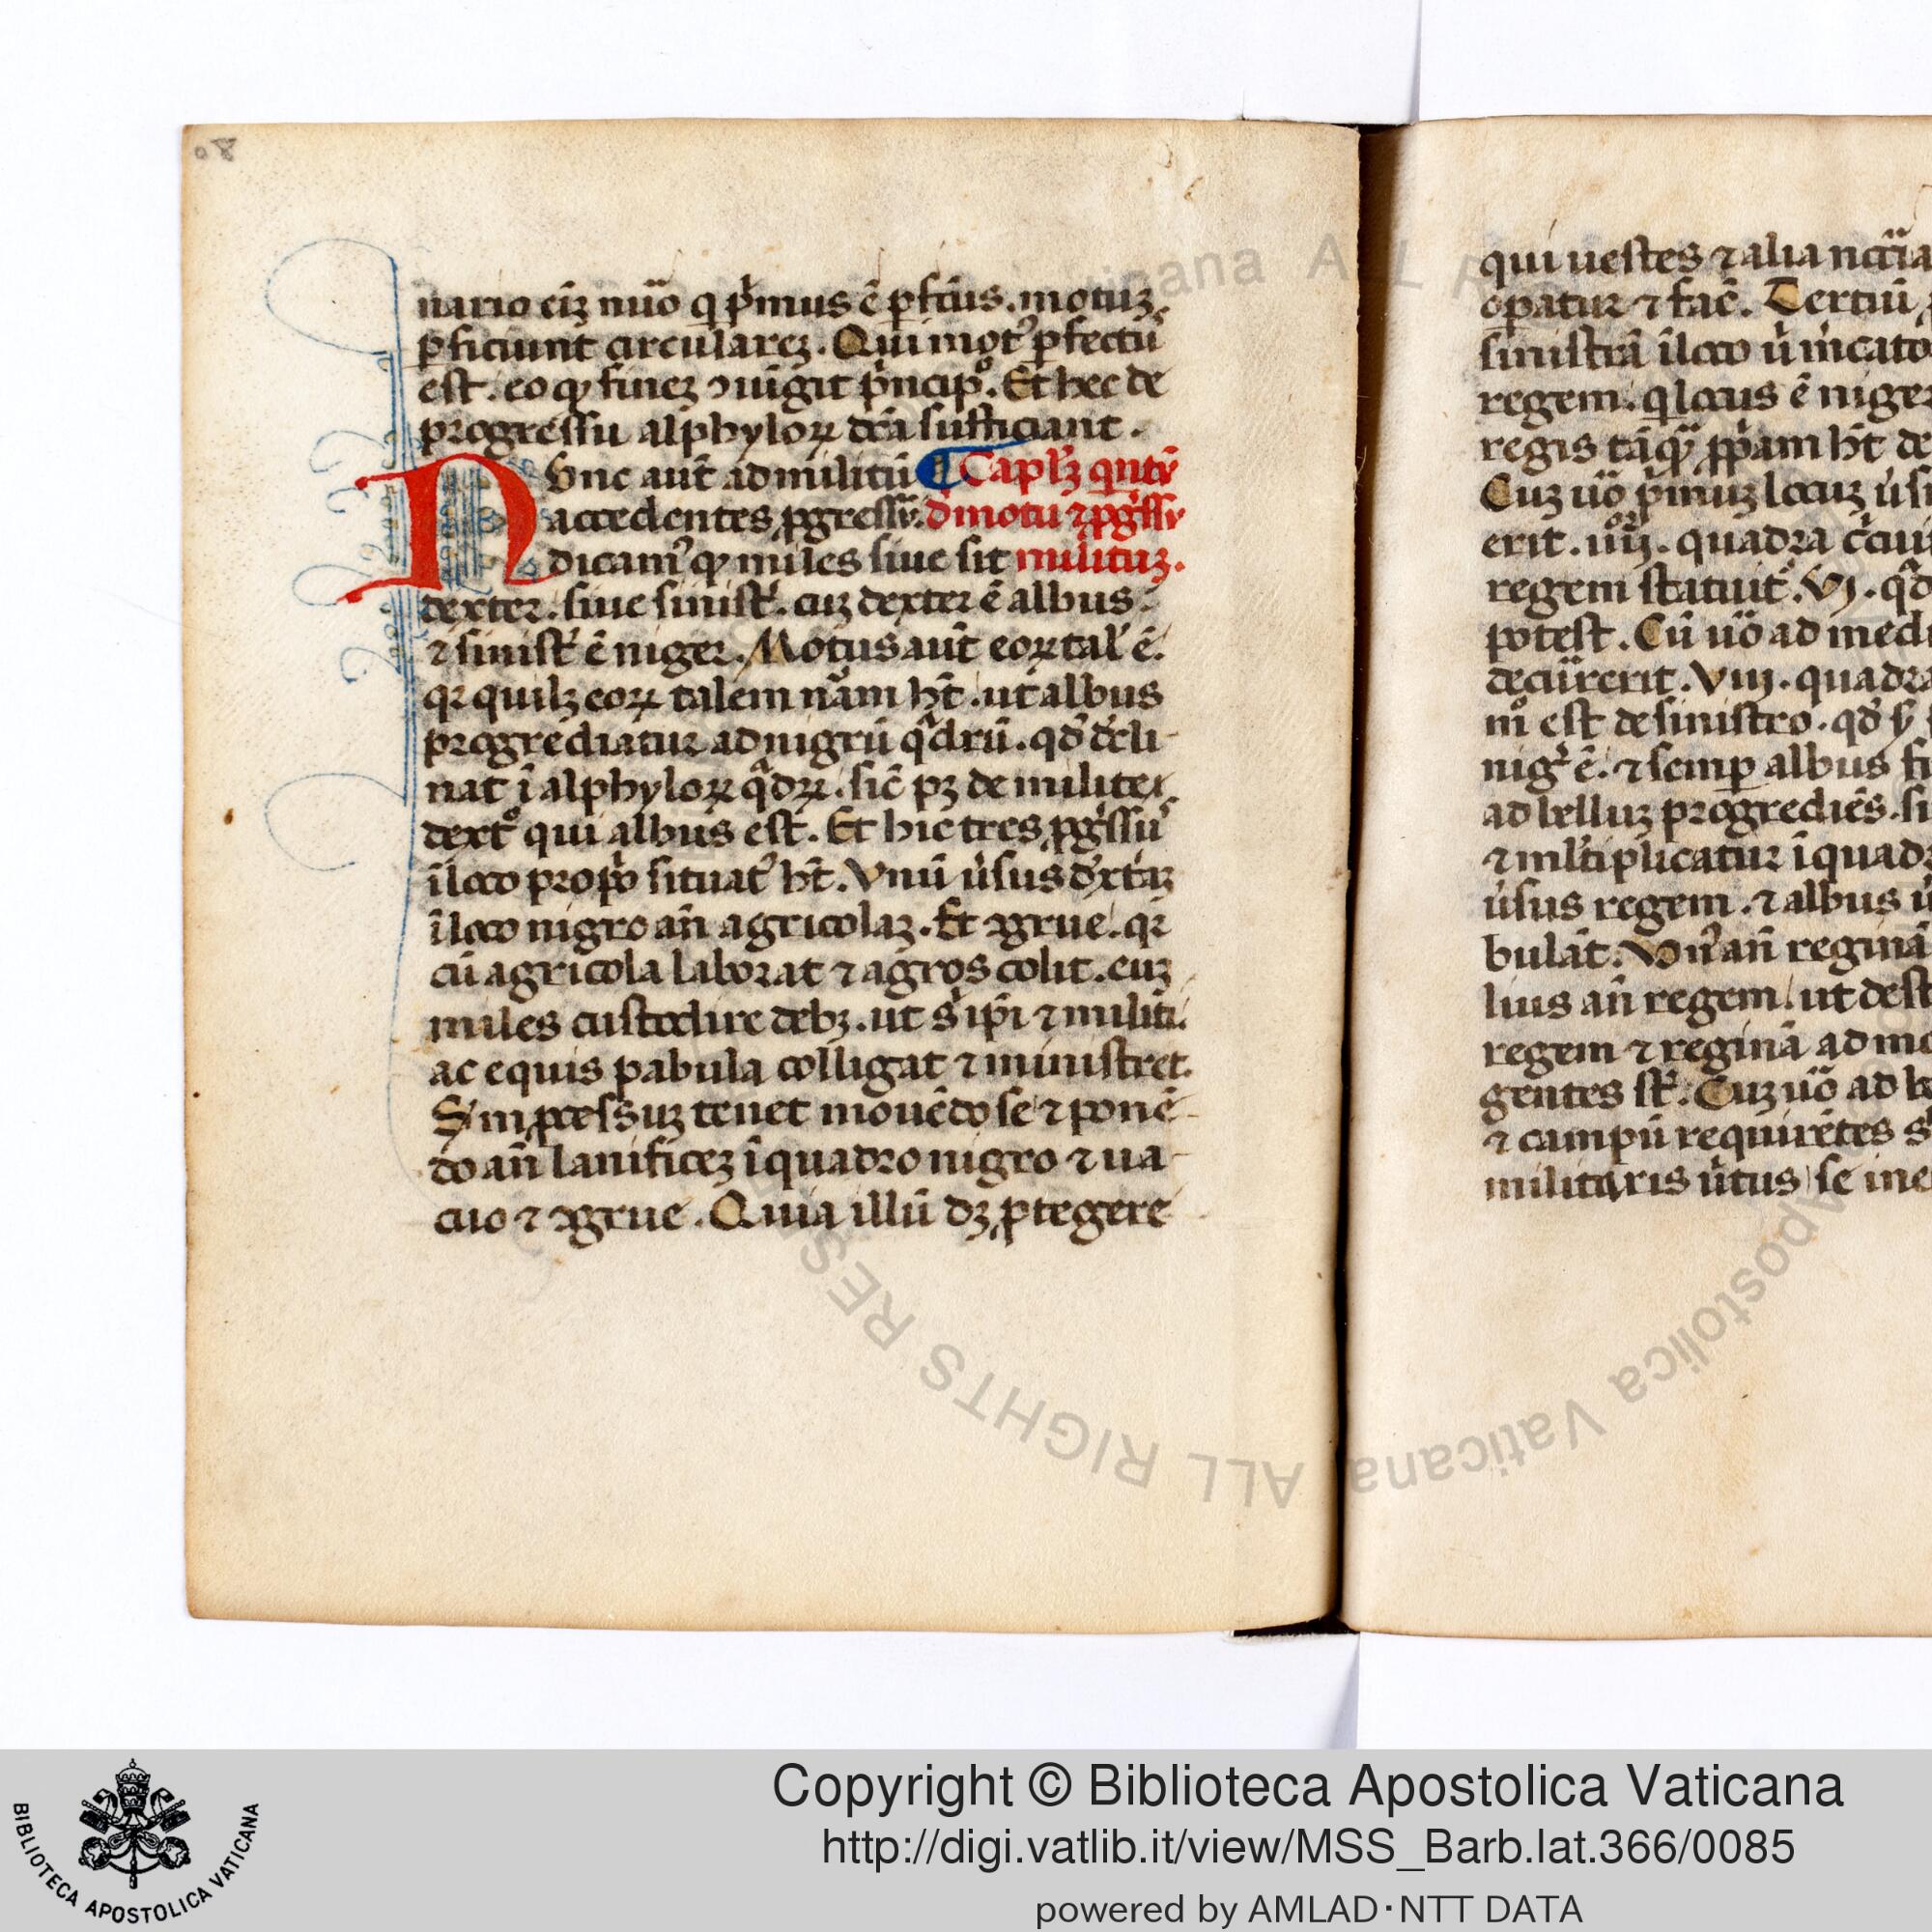 nario eiꝫ nūo q pͥmus ē ꝑfcūs. motuꝫ
ꝑficiunt circulareꝫ. Qui motꝰ ꝑfectū
est. eo qꝫ fineꝫ ꝯuigit pͥncipͦ. Et hec de
progressu alphyloꝝ dcā sufficiant.
Nunc aut̄ ad militū ¶ Capl'ꝫ qntū
accedentes ꝓgressū. d̄ motu ⁊ ꝓg̾ssu
dicamꝰ qꝫ miles siue sit militūꝫ.
dexter. siue sinist̾. cuꝫ dexter ē albus.
⁊ sinist̾ ē niger. Motus aut̄ eoꝝ tal' ē.
qꝛ quilꝫ eoꝝ talem nāꝫm ht̄. ut albus
progrediatur ad nigrū qͣdrū. qd̄ decli-
nat ī alphyloꝝ qͣdꝝ. sic̄ pꝫ de milite
dextͦ qui albus est. Et hic tres ꝓg̾ssū
ī loco propͥo situatꝰ ht̄. Vnū u̾sus dext̾aꝫ
ī loco nigro an̄ agricolaꝫ. Et ꝯgrue. qꝛ
cū agricola laborat ⁊ agros colit. euꝫ
miles custodire debꝫ. ut sͥ ip̄i ⁊ militi.
ac equis pabula colligat ⁊ ministret.
S̄m ꝓcessuꝫ tenet mouēdo se ⁊ ponē-
do an̄ lanificeꝫ ī quadro nigro ⁊ ua-
cuo ⁊ ꝯgrue. Quia illū dꝫ ꝓtegere
qui uestes ⁊ alia nccīa
oꝑatur ⁊ fac̄. Tertiū
sinistrā ī loco u̾
regem. q locus ē niger
regis tāqꝫ ꝓpͥam ht̄ de
Cuꝫ uo̅ pͥmuꝫ locuꝫ
erit. iiij. quadra
regem statuit̾. vj. qd
potest. Cū uo̅ ad medi
decurrerit. viij. quadra
mͦ est de sinistro. qd̄
nig̾ ē. ⁊ semꝑ albus
ad belluꝫ progrediēs. si
⁊ ml'tiplicatur ī quad
u̾sus regem. ⁊ albus
bulāt. Vnꝰ an̄ reginā
lius an̄ regem. ut
regem ⁊ reginā ad mo
gentes st̄. Cuꝫ uo̅ ad be
⁊ campū requirētes
militaris u̾tus se
ALL RIGHTS RES
Apostolica Vaticana
BIBLIOTECA APOSTOLICA VATICANA
Copyright © Biblioteca Apostolica Vaticana
http://digi.vatlib.it/view/MSS_Barb.lat.366/0085
powered by AMLAD·NTT DATA